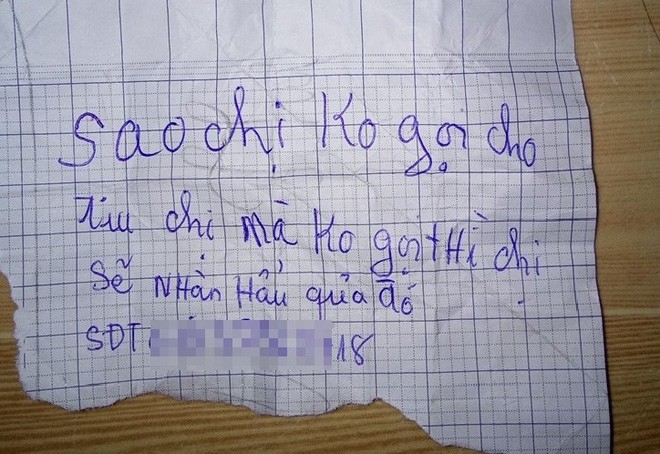 Sao chị Ko gọi cho
chị mà Ko gọi tHì chị
Sẽ NHận Hẩu qủa đó
SĐT 18